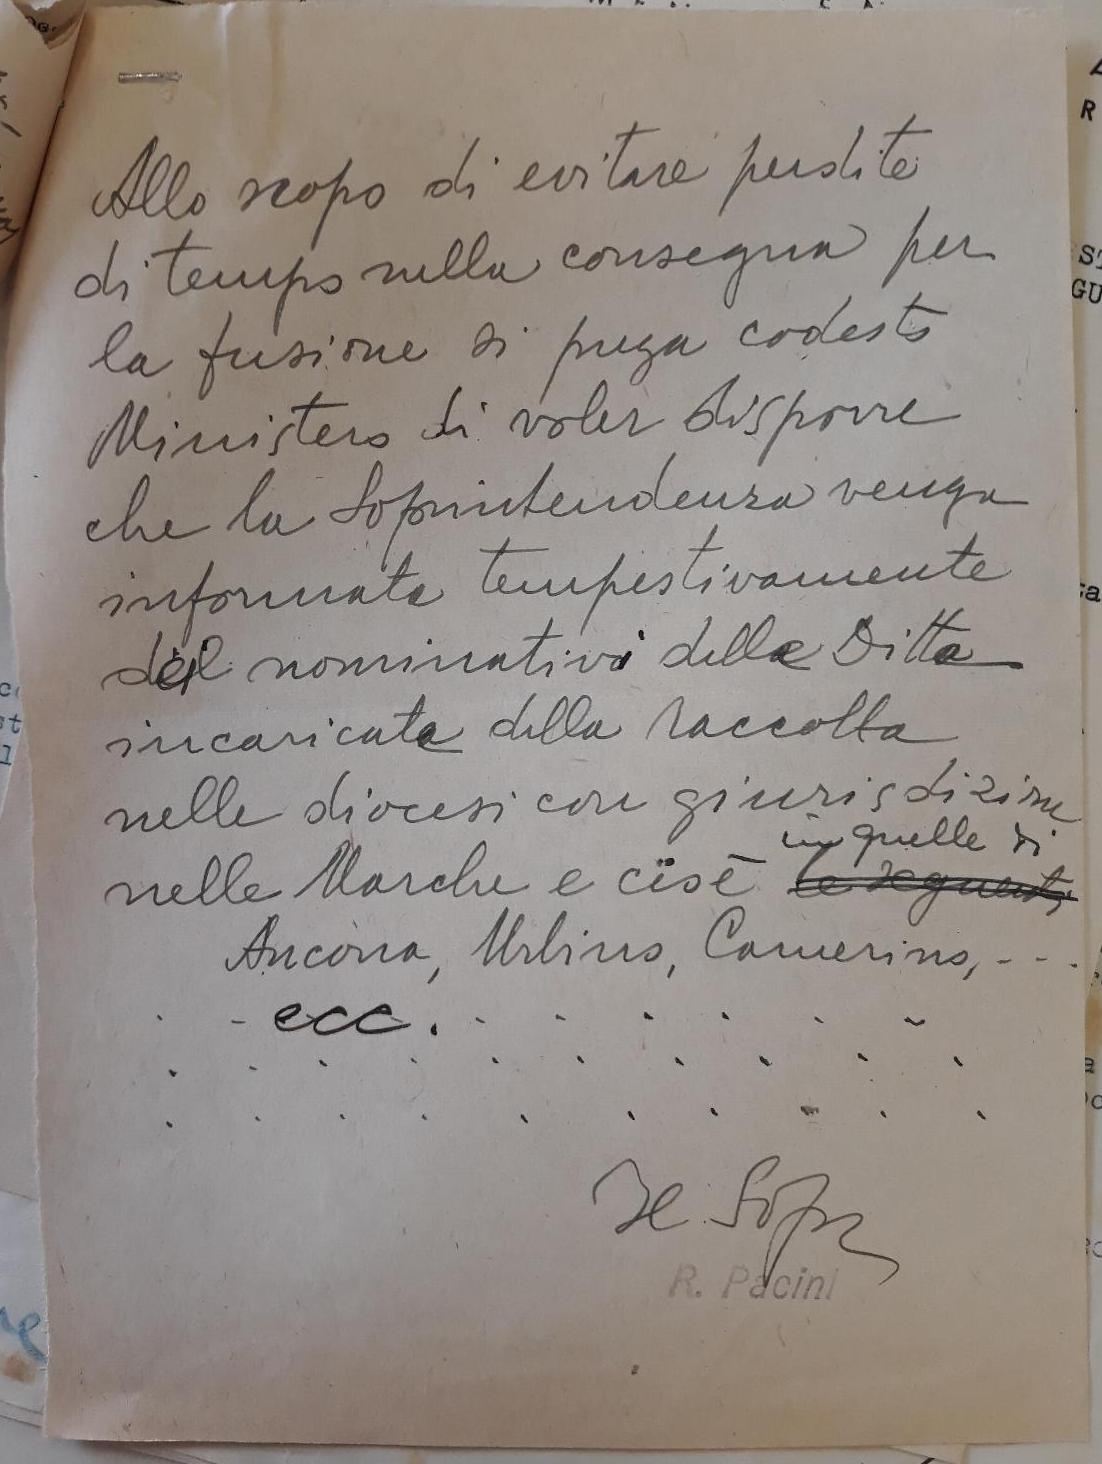 Allo scopo di evitare perdite
di tempo nella consegna per
la fusione si prega codesto
Ministero di voler disporre
che la Soprintendenza venga
informata tempestivamente
del nominativo della Ditta
incaricata della raccolta
nelle diocesi con giurisdizione
in quelle di
nelle Marche e cioè le seguenti
Ancona, Urbino, Camerino, - - -
ecc.
Il Sopr
R. Pacini